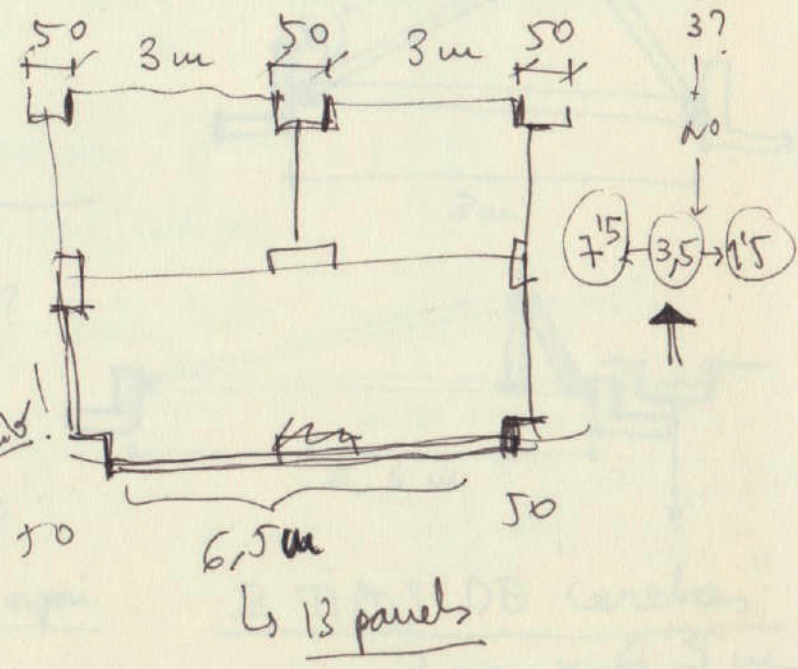 50 3m 50 3m 50
3?
NO
7'5 3,5 1'5
50 6,5m 50
↳ 13 panels